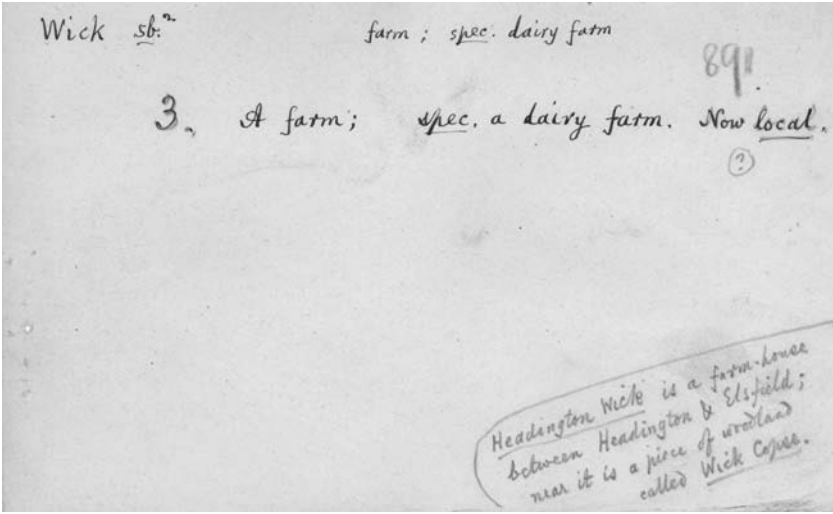 Wick sb.² farm; spec. dairy farm
891
3. A farm; spec. a dairy farm. Now local.
(?)
Headington Wick is a farm-house
between Headington & Elsfield;
near it is a piece of woodland
called Wick Copse.